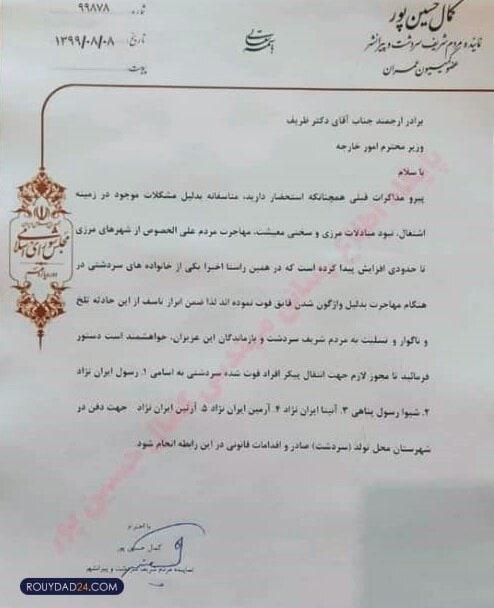 کمال حسین پور
نماینده مردم شریف سردشت و پیرانشهر
عضو کمیسیون عمران
باسمه تعالی
شماره: ۹۹۸۷۸
تاریخ: ۱۳۹۹/۰۸/۰۸
پیوست:
مجلس شورای اسلامی
برادر ارجمند جناب آقای دکتر ظریف
وزیر محترم امور خارجه
با سلام
پیرو مذاکرات قبلی همچنانکه استحضار دارید، متاسفانه بدلیل مشکلات موجود در زمینه
اشتغال، نبود مبادلات مرزی و سختی معیشت، مهاجرت مردم علی الخصوص از شهرهای مرزی
تا حدودی افزایش پیدا کرده است که در همین راستا اخیرا یکی از خانواده های سردشتی در
هنگام مهاجرت بدلیل واژگون شدن قایق فوت نموده اند لذا ضمن ابراز تاسف از این حادثه تلخ
و ناگوار و تسلیت به مردم شریف سردشت و بازماندگان این عزیزان، خواهشمند است دستور
فرمائید تا مجوز لازم جهت انتقال پیکر افراد فوت شده سردشتی به اسامی ۱. رسول ایران نژاد
۲. شیوا رسول پناهی ۳. آنیتا ایران نژاد ۴. آرمین ایران نژاد ۵. آرتین ایران نژاد جهت دفن در
شهرستان محل تولد (سردشت) صادر و اقدامات قانونی در این رابطه انجام شود.
با احترام
کمال حسین پور
نماینده مردم شریف سردشت و پیرانشهر
پایگاه اطلاع رسانی مهندس کمال حسین پور
ROUYDAD24.COM